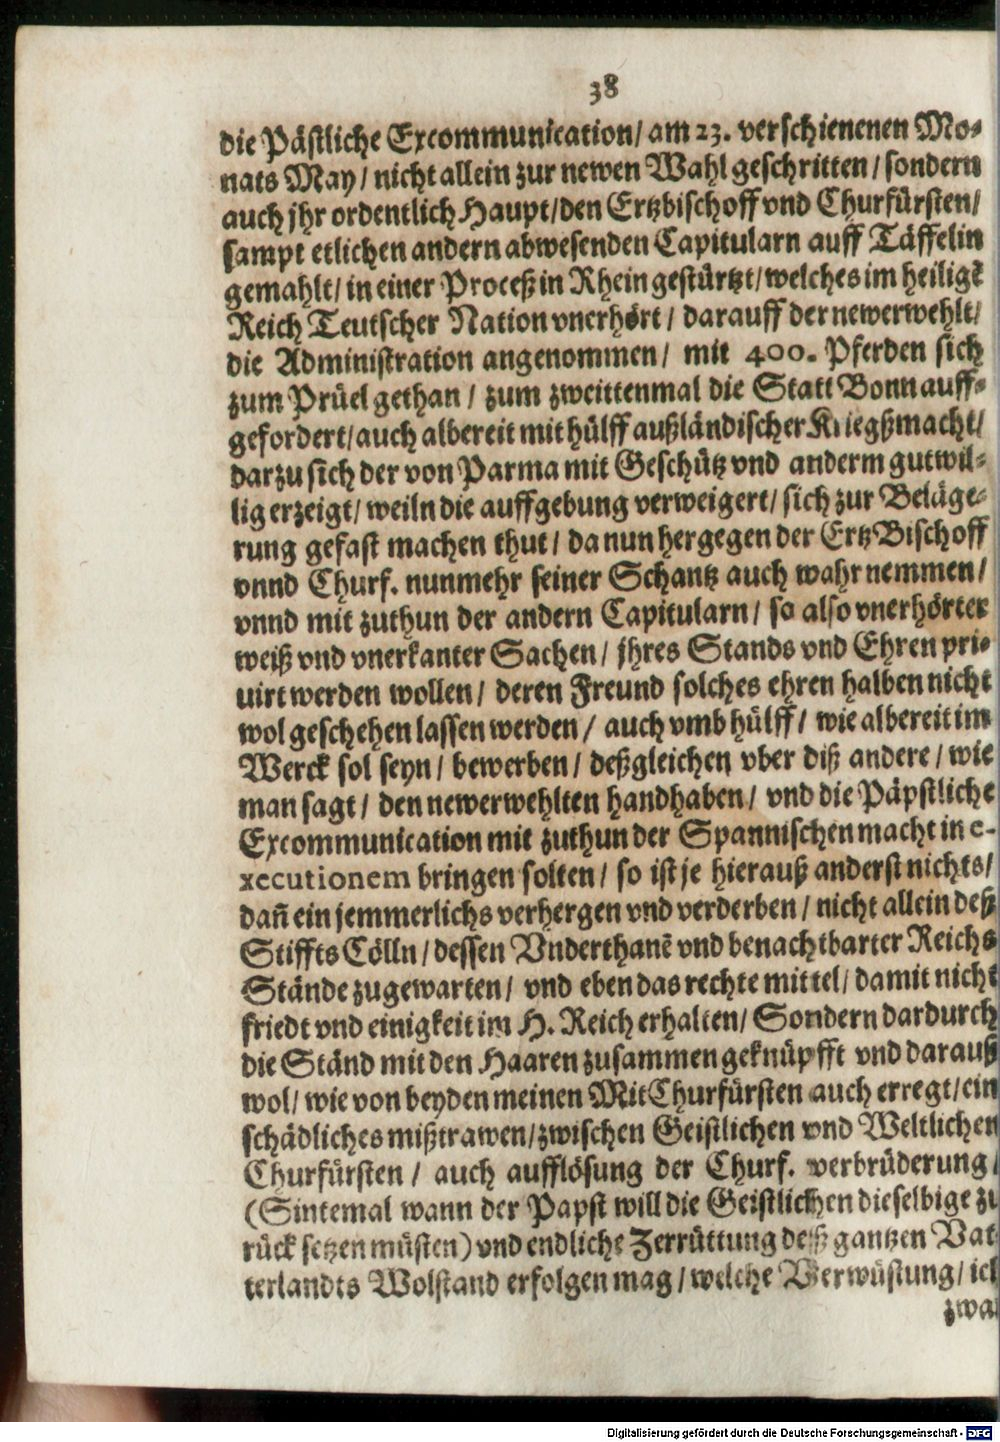 38
die Pästliche Excommunication/ am 23. verschienenen Mo-
nats May/ nicht allein zur newen Wahl geschritten/ sondern
auch jhr ordentlich Haupt/ den Ertzbischoff vnd Churfürsten/
sampt etlichen andern abwesenden Capitularn auff Täffelin
gemahlt/ in einer Proceß in Rhein gestürtzt/ welches im heiligẽ
Reich Teutscher Nation vnerhört/ darauff der newerwehlt/
die Administration angenommen/ mit 400. Pferden sich
zum Prüel gethan/ zum zweittenmal die Statt Bonn auff-
gefordert/ auch albereit mit hülff außländischer Kriegßmacht/
darzu sich der von Parma mit Geschütz vnd anderm gutwil-
lig erzeigt/ weiln die auffgebung verweigert/ sich zur Beläge-
rung gefast machen thut/ da nun hergegen der ErtzBischoff
vnnd Churf. nunmehr seiner Schantz auch wahr nemmen/
vnnd mit zuthun der andern Capitularn/ so also vnerhörter
weiß vnd vnerkanter Sachen/ jhres Stands vnd Ehren pri-
uirt werden wollen/ deren Freund solches ehren halben nicht
wol geschehen lassen werden/ auch vmb hülff/ wie albereit im
Werck sol seyn/ bewerben/ deßgleichen vber diß andere/ wie
man sagt/ den newerwehlten handhaben/ vnd die Päpstliche
Excommunication mit zuthun der Spannischen macht in e-
xecutionem bringen solten/ so ist je hierauß anderst nichts/
dañ ein jemmerlichs verhergen vnd verderben/ nicht allein deß
Stiffts Cölln/ dessen Vnderthanẽ vnd benachtbarter Reichs
Stände zugewarten/ vnd eben das rechte mittel/ damit nicht
friedt vnd einigkeit im H. Reich erhalten/ Sondern dardurch
die Ständ mit den Haaren zusammen geknüpfft vnd darauß
wol/ wie von beyden meinen MitChurfürsten auch erregt/ ein
schädliches mißtrawen/ zwischen Geistlichen vnd Weltlichen
Churfürsten/ auch aufflösung der Churf. verbrüderung/
(Sintemal wann der Papst will die Geistlichen dieselbige zu
rück setzen müsten) vnd endliche Zerrüttung deß gantzen Vat-
terlandts Wolstand erfolgen mag/ welche Verwüstung/ ich
zwa
Digitalisierung gefördert durch die Deutsche Forschungsgemeinschaft - DFG